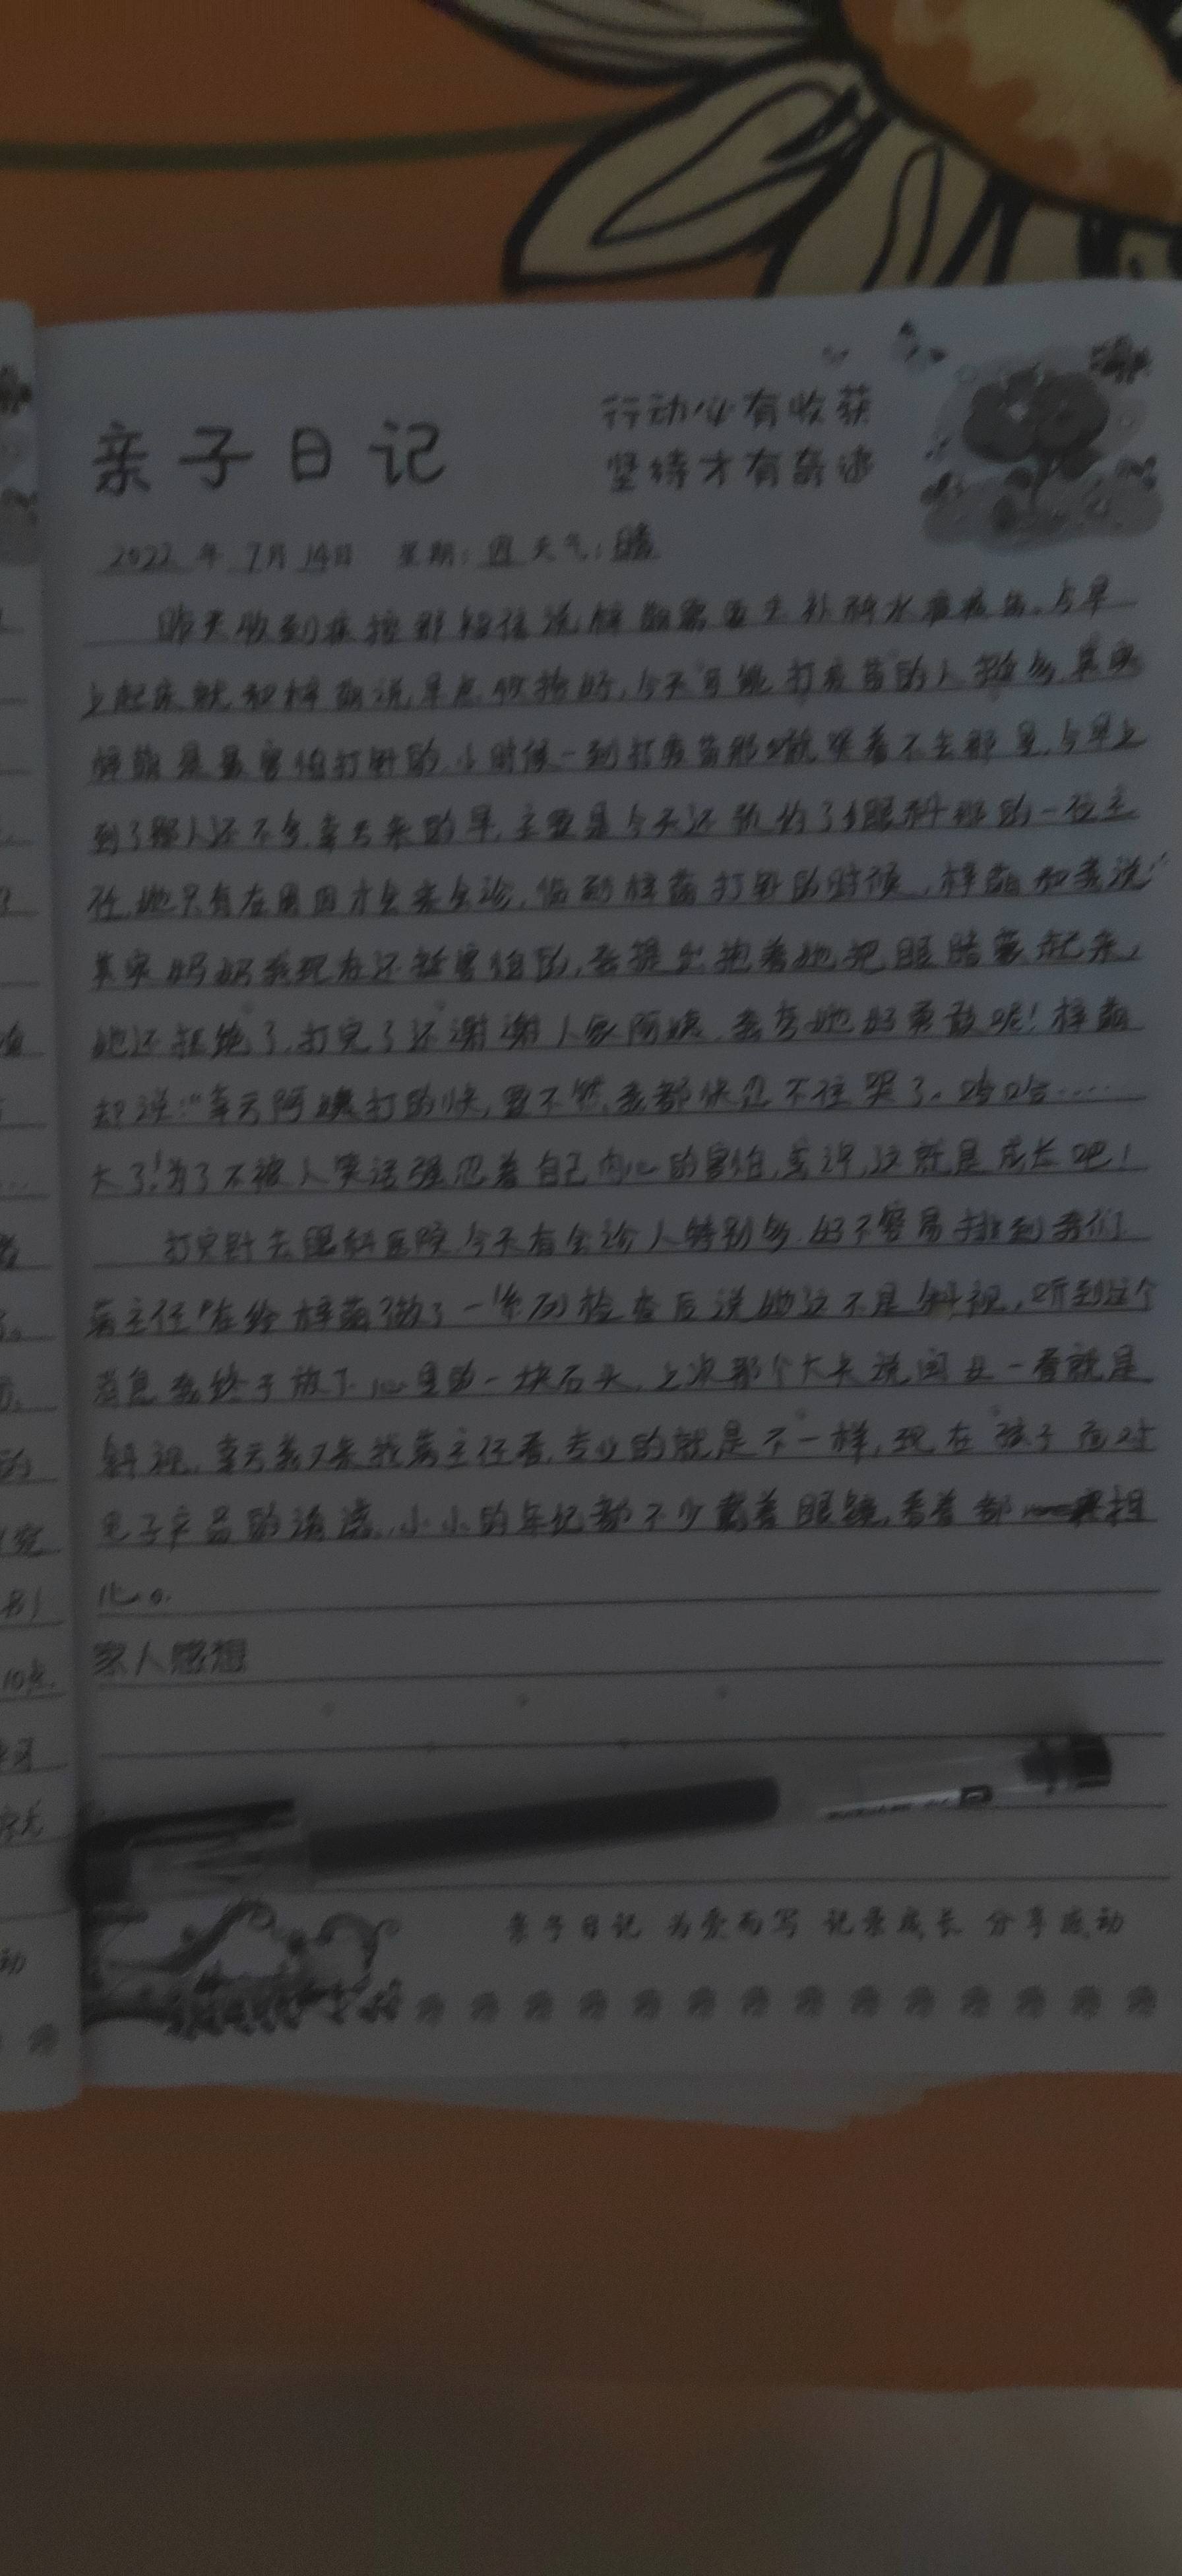 亲子日记
行动必有收获
坚持才有奇迹
2022年 7月 14日 星期：四 天气：晴
昨天收到疾控那短信说梓萌需要去补种水痘疫苗，今早
上起床就和梓萌说早点收拾好，今天可能打疫苗的人挺多，其实
梓萌是最害怕打针的，小时候一到打疫苗那就哭着不去那里，今早上
到了那人还不多，幸亏来的早，主要是今天还预约了眼科那的一位主
任，她只有在周四才会来会诊，临到梓萌打针的时候，梓萌和我说：“
其实妈妈我现在还挺害怕的，我提出抱着她把眼睛蒙起来，
她还拒绝了，打完了还谢谢人家阿姨，我夸她好勇敢呢！梓萌
却说：“幸亏阿姨打的快，要不然我都快忍不住哭了。哈哈……
大了！为了不被人笑话强忍着自己内心的害怕，或许，这就是成长吧！
打完针去眼科医院，今天有会诊人特别多，好不容易排到我们
主任在给梓萌做了一系列检查后说她这不是斜视，听到这个
消息我终于放下心里的一块石头，上次那个大夫说闺女一看就是
斜视，幸亏我又来找主任看，专业的就是不一样，现在孩子面对
电子产品的诱惑，小小的年纪都不少戴着眼镜，看着都担
心。
家人感想
亲子日记 为爱而写 记录成长 分享感动
10点